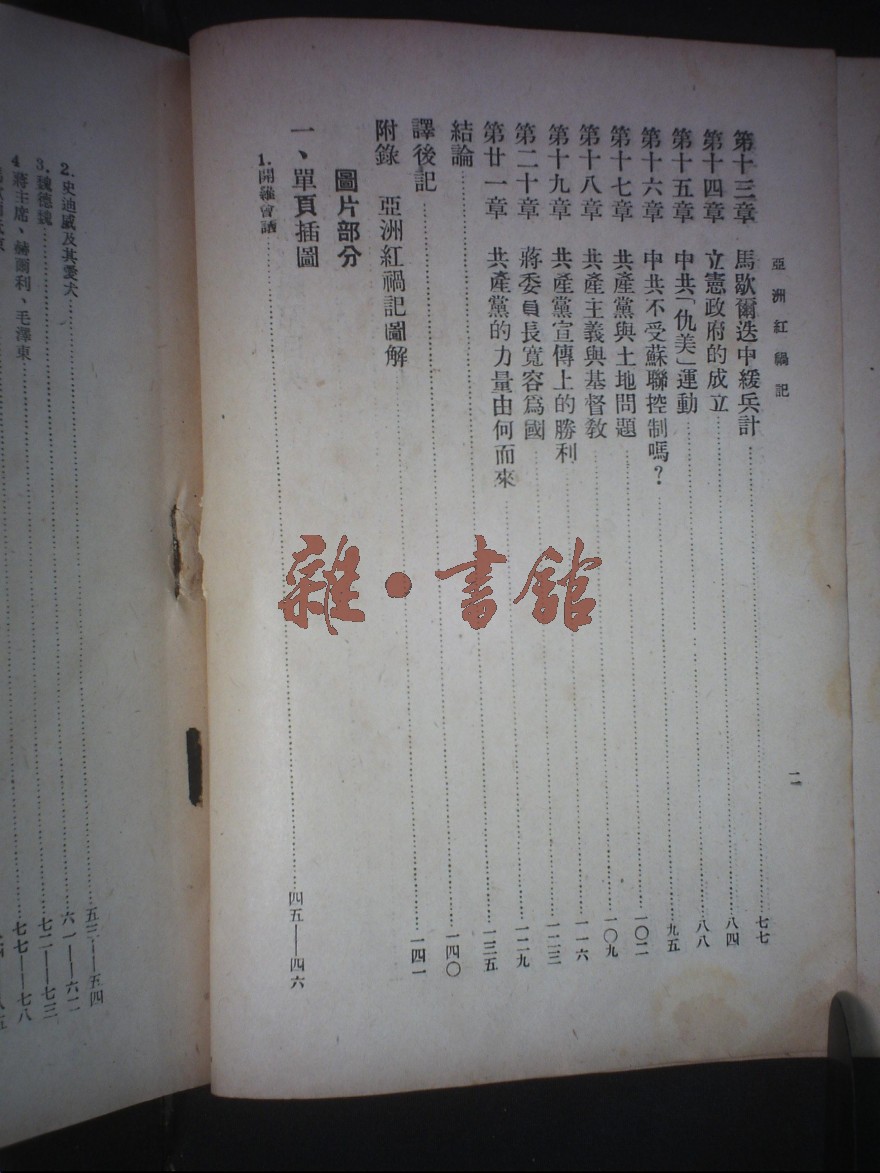 亞洲紅禍記
二
第十三章 馬歇爾迭中緩兵計……七七
第十四章 立憲政府的成立……八四
第十五章 中共「仇美」運動……八八
第十六章 中共不受蘇聯控制嗎？……九五
第十七章 共產黨與土地問題……一〇二
第十八章 共產主義與基督教……一〇九
第十九章 共產黨宣傳上的勝利……一一六
第二十章 蔣委員長寬容為國……一二三
第廿一章 共產黨的力量由何而來……一二九
結論……一三五
譯後記……一四〇
附錄 亞洲紅禍記圖解……一四一
圖片部分
一、單頁插圖
1.開羅會議……四五——四六
2.史迪威及其愛犬……五三——五四
3.魏德魏……六一——六二
4 蔣主席、赫爾利、毛澤東……七二——七三
七七——七八
雜·書館